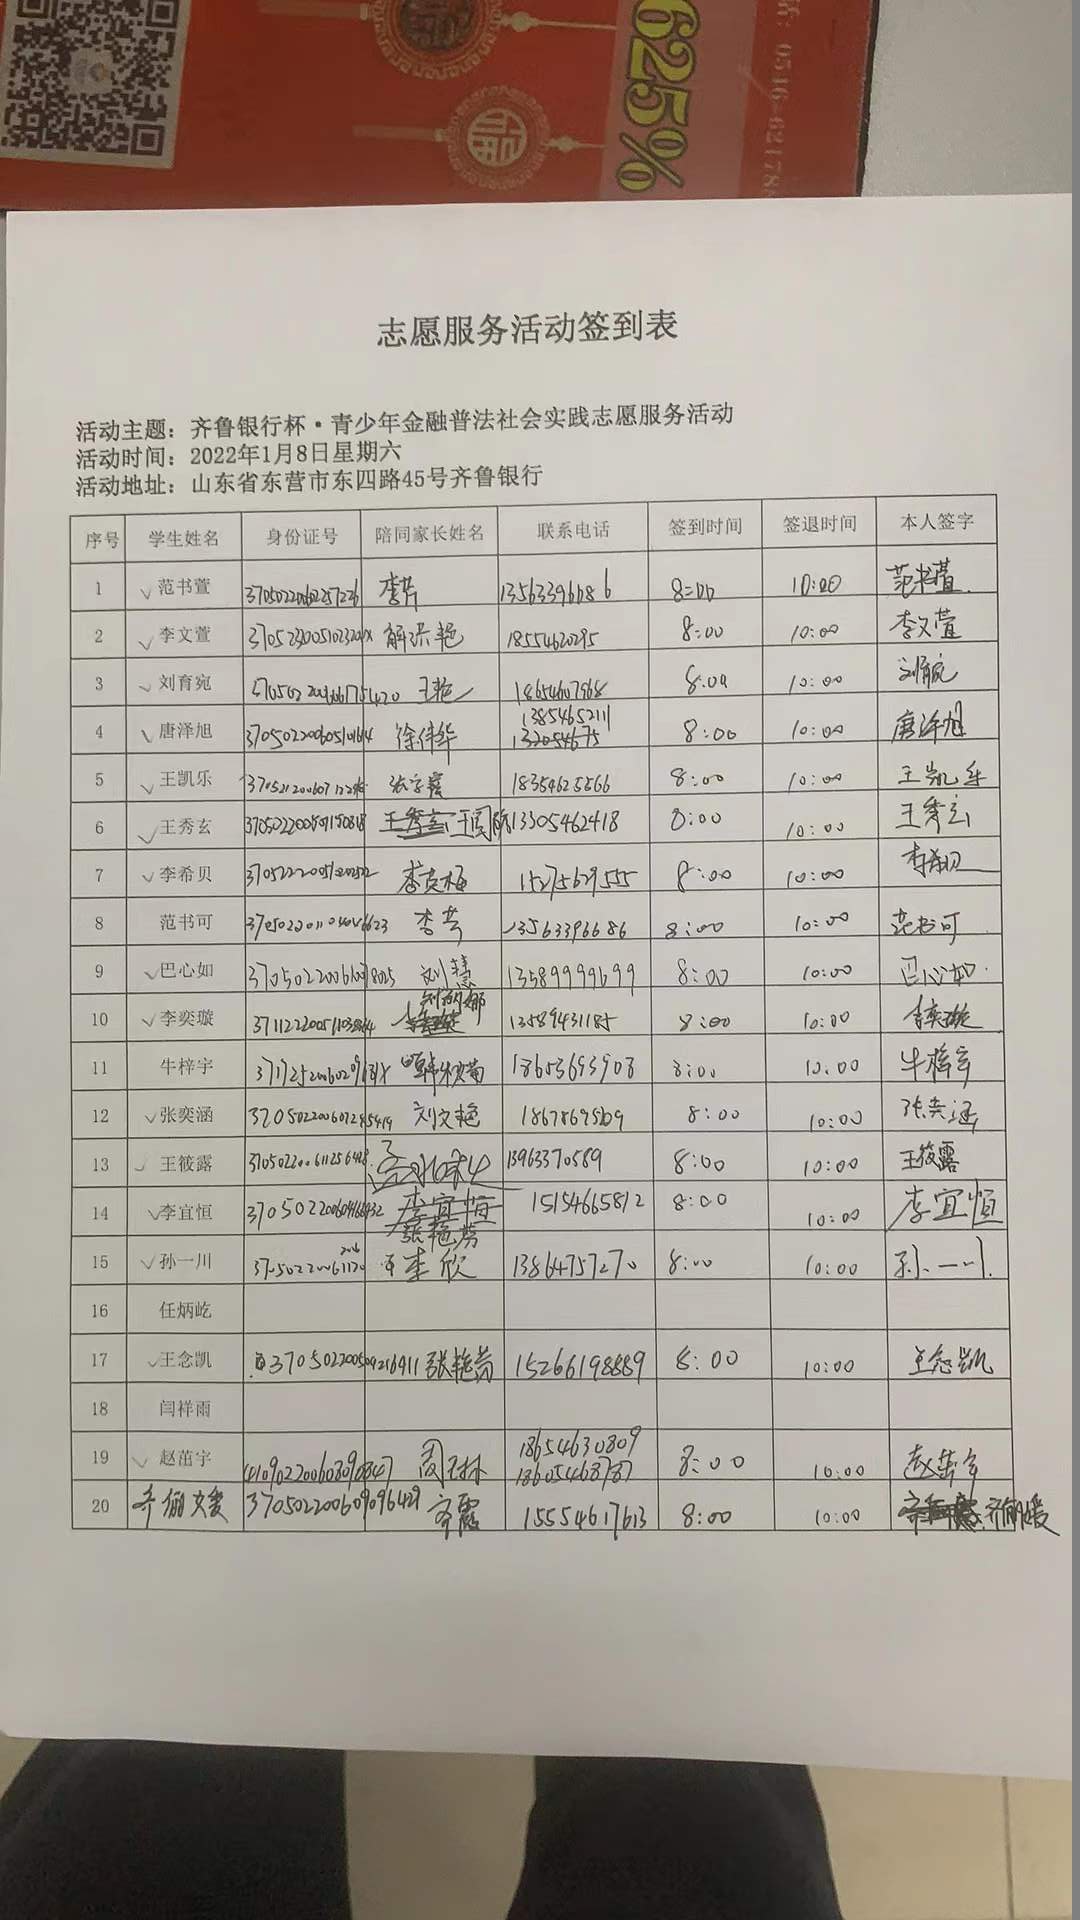 625%
福
志愿服务活动签到表
活动主题：齐鲁银行杯·青少年金融普法社会实践志愿服务活动
活动时间：2022年1月8日星期六
活动地址：山东省东营市东四路45号齐鲁银行
序号 学生姓名 身份证号 陪同家长姓名 联系电话 签到时间 签退时间 本人签字
1 范书萱 李芳 13563396686 8:00 10:00 范书萱
2 李文萱 18554620295 8:00 10:00 李文萱
3 刘育宛 王艳 18654607968 8:00 10:00 刘育宛
4 唐泽旭 徐伟华 13854652111 8:00 10:00 唐泽旭
5 王凯乐 18354625566 8:00 10:00 王凯乐
6 王秀玄 13305462418 8:00 10:00 王秀玄
7 李希贝 李克梅 15275629555 8:00 10:00 李希贝
8 范书可 李芳 13563396686 8:00 10:00 范书可
9 巴心如 刘慧 13589999699 8:00 10:00 巴心如
10 李奕璇 13589431185 8:00 10:00 李奕璇
11 牛梓宇 18653693908 8:00 10:00 牛梓宇
12 张奕涵 370502200607285419 刘文艳 8:00 10:00 张奕涵
13 王筱露 370502200611256428 13963370589 8:00 10:00 王筱露
14 李宜恒 李宜恒 张艳芳 15154665812 8:00 10:00 李宜恒
15 孙一川 李欣 13864757270 8:00 10:00 孙一川
16 任炳屹
17 王念凯 370502200509216911 张艳芳 15266198889 8:00 10:00 王念凯
18 闫祥雨
19 赵茁宇 410902200608090847 18654630809 18605468787 8:00 10:00 赵茁宇
20 齐俪媛 370502200609096429 齐霞 15554617613 8:00 10:00 齐俪媛